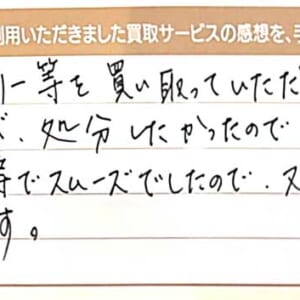 利用いただきました買取サービスの感想を、手
リー等を買い取っていただ
ど、処分したかったので
等でスムーズでしたので、又
す。